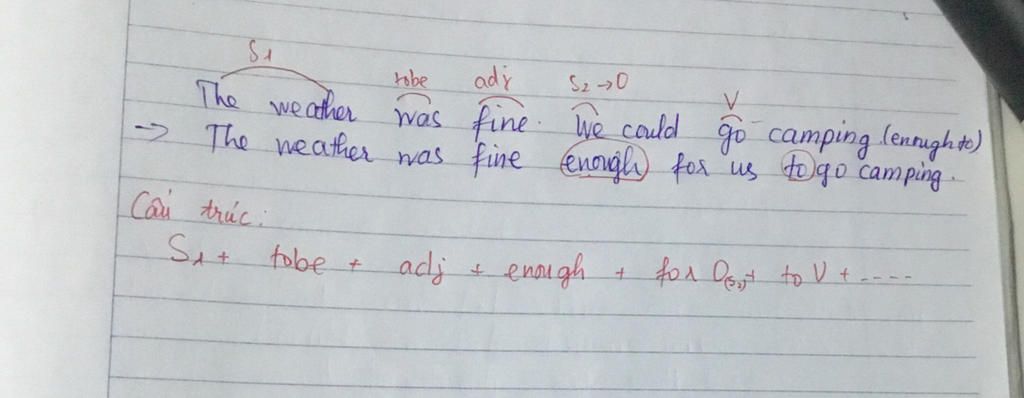 S1
tobe adj S2→O V
The weather was fine. We could go camping.(enough to)
→ The weather was fine enough for us to go camping.
Cấu trúc:
S1 + tobe + adj + enough + for O(S2)+ to V + ....